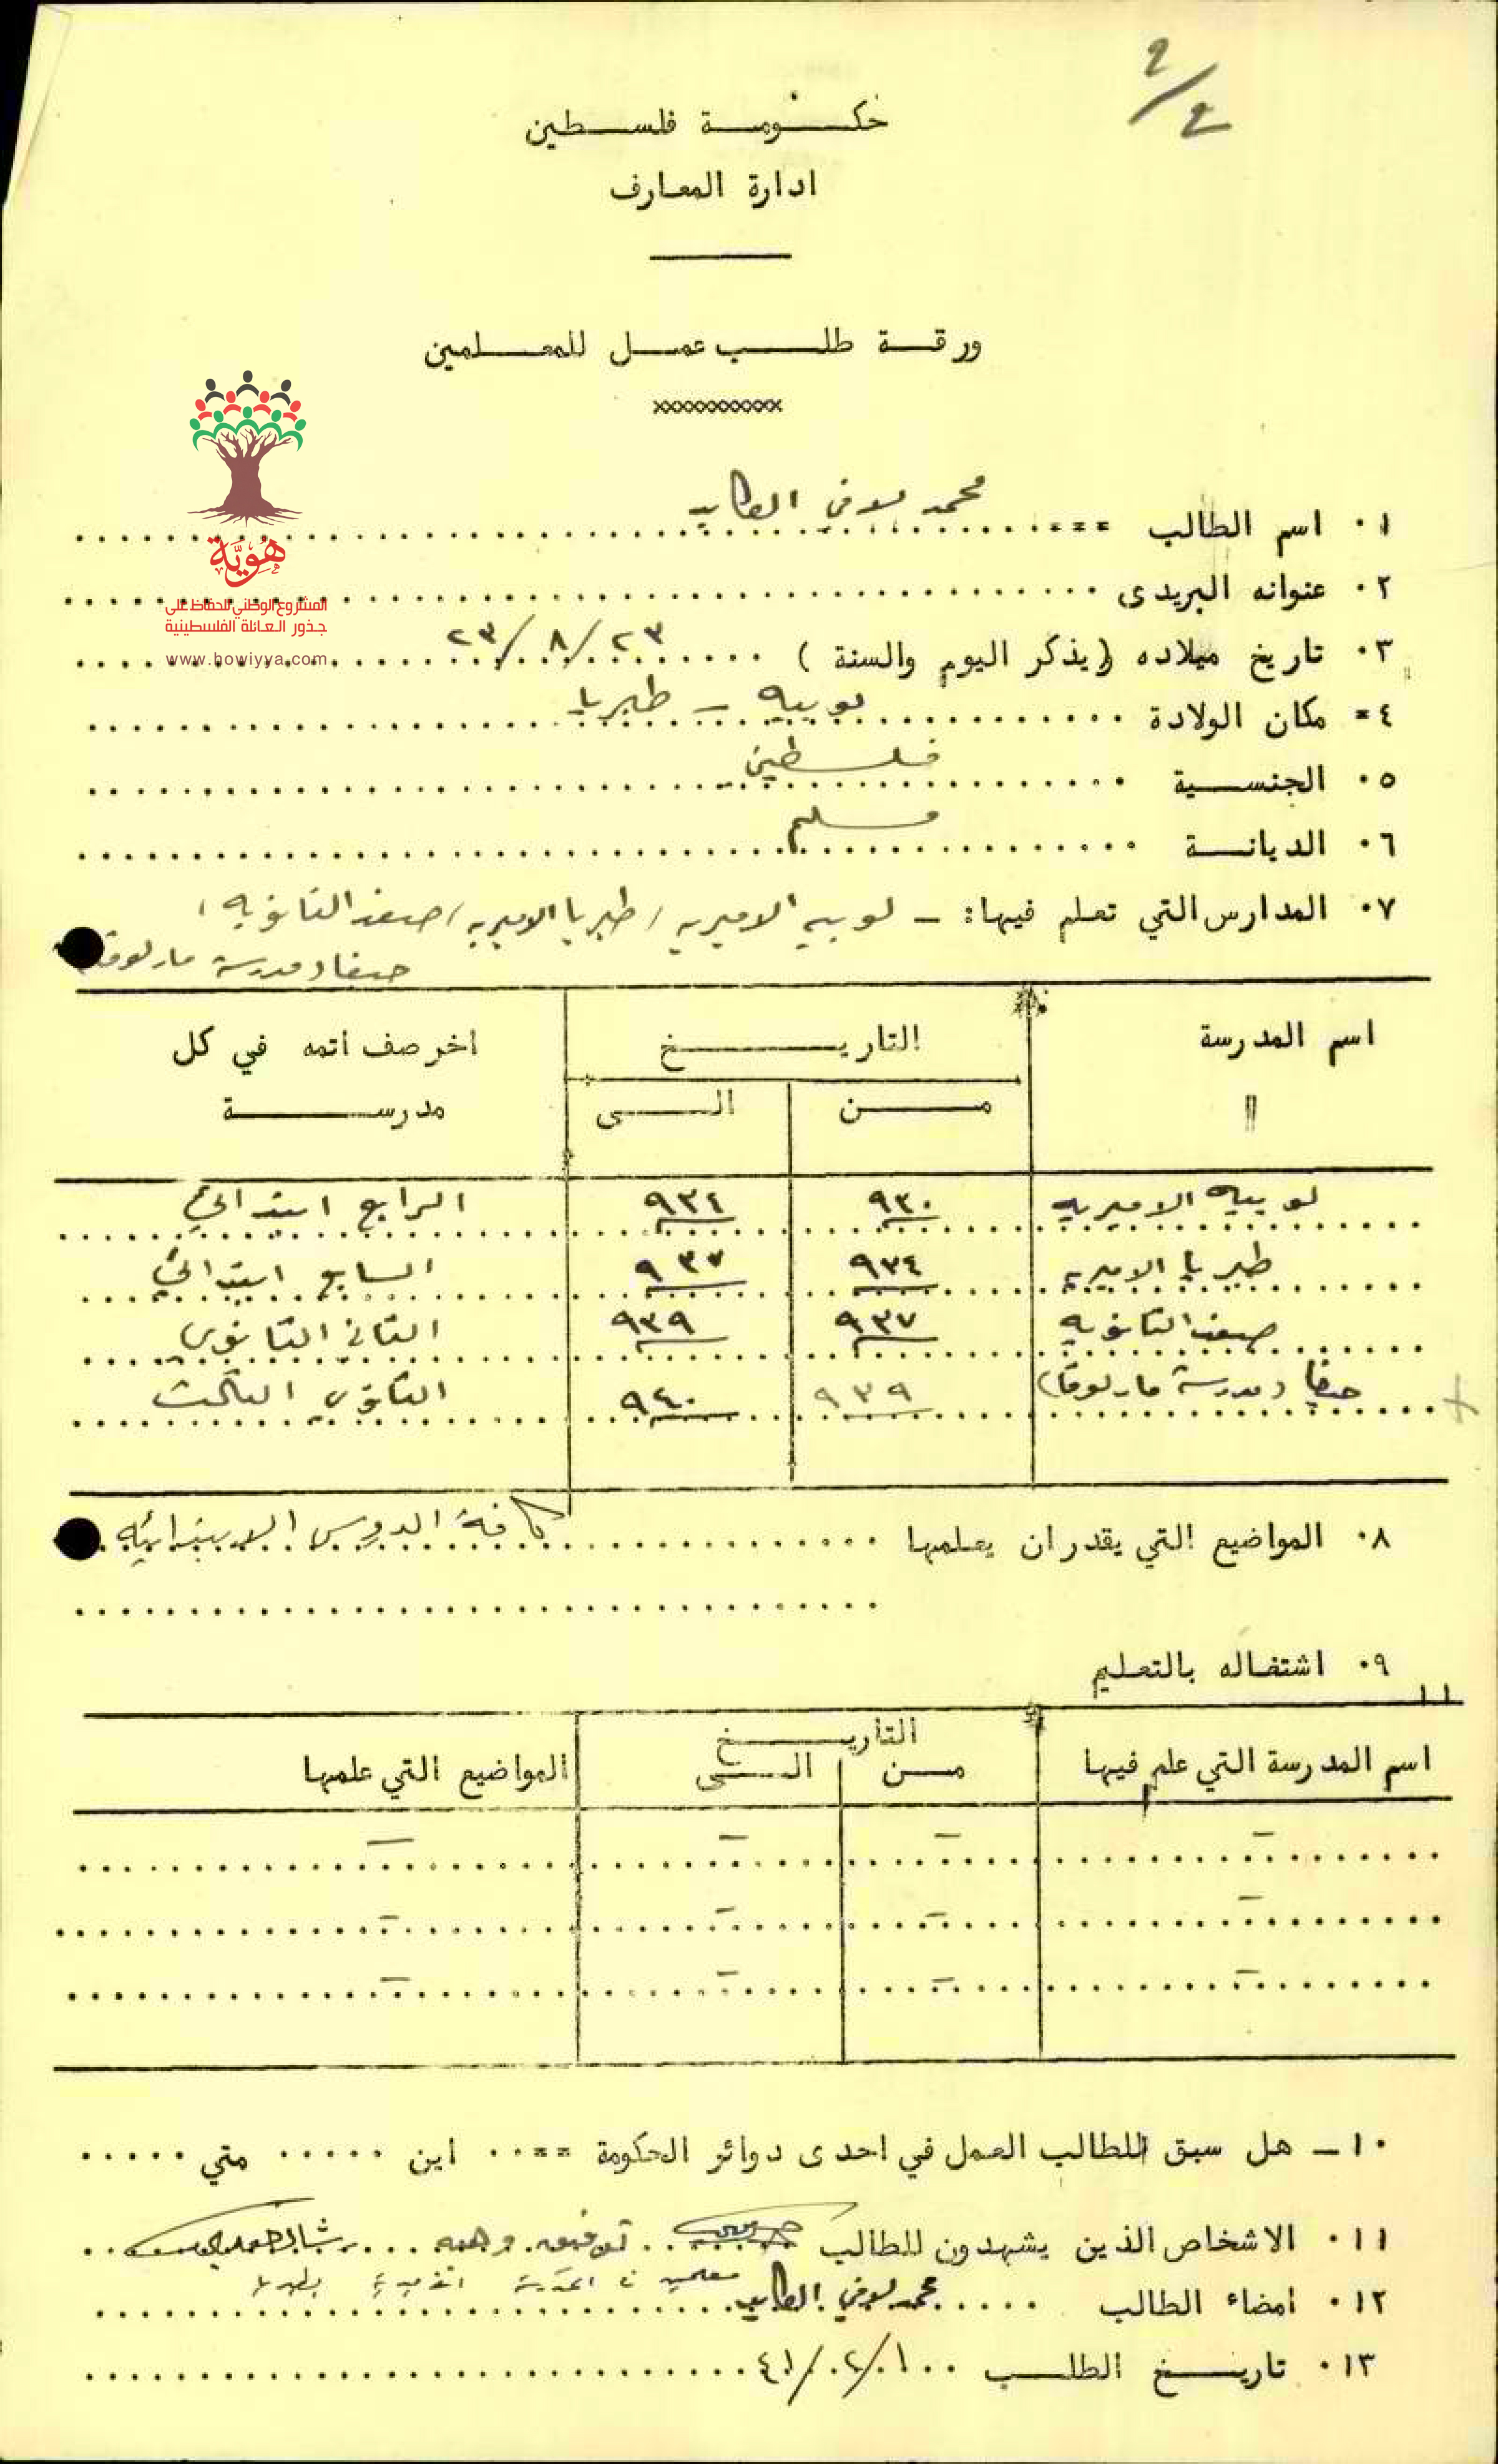 ٢/٤
حكومة فلسطين
ادارة المعارف
ورقة طلب عمل للمعلمين
xxxxxxxxxxxx
هوية
المشروع الوطني للحفاظ على
جذور العائلة الفلسطينية
www.howiyya.com
٠١ اسم الطالب محمد لافي العايد
٠٢ عنوانه البريدى
٠٣ تاريخ ميلاده (يذكر اليوم والسنة) ٢٣/٨/٢٣
٤= مكان الولادة لوبيه – طبريا
٠٥ الجنسية فلسطين
٠٦ الديانة مسلم
٠٧ المدارس التي تعلم فيها: – لوبيه الاميريه / طبريا الاميريه / صفد الثانويه ،
حيفا ( مدرسة مار لوقا
اسم المدرسة
التاريخ
اخر صف اتمه في كل
"
من
الى
مدرسة
لوبيه الاميريه ٩٣٠ ٩٣٤ الرابع ابتدائي
طبريا الاميريه ٩٣٤ ٩٣٧ السابع ابتدائي
صفد الثانويه ٩٣٧ ٩٣٩ الثاني الثانوي
حيفا (مدرسة مار لوقا) ٩٣٩ ٩٤٠ الثانوي الثالث
٠٨ المواضيع التي يقدر ان يعلمها كافة الدروس الابتدائيه
٠٩ اشتغاله بالتعليم
اسم المدرسة التي علم فيها
التاريخ
من
الى
المواضيع التي علمها
٠١٠– هل سبق للطالب العمل في احدى دوائر الحكومة اين متي
٠١١ الاشخاص الذين يشهدون للطالب توفيق وهبه
بطبريا
٠١٢ امضاء الطالب محمد لافي العايد
٠١٣ تاريخ الطلب ١٠/٢/٤١